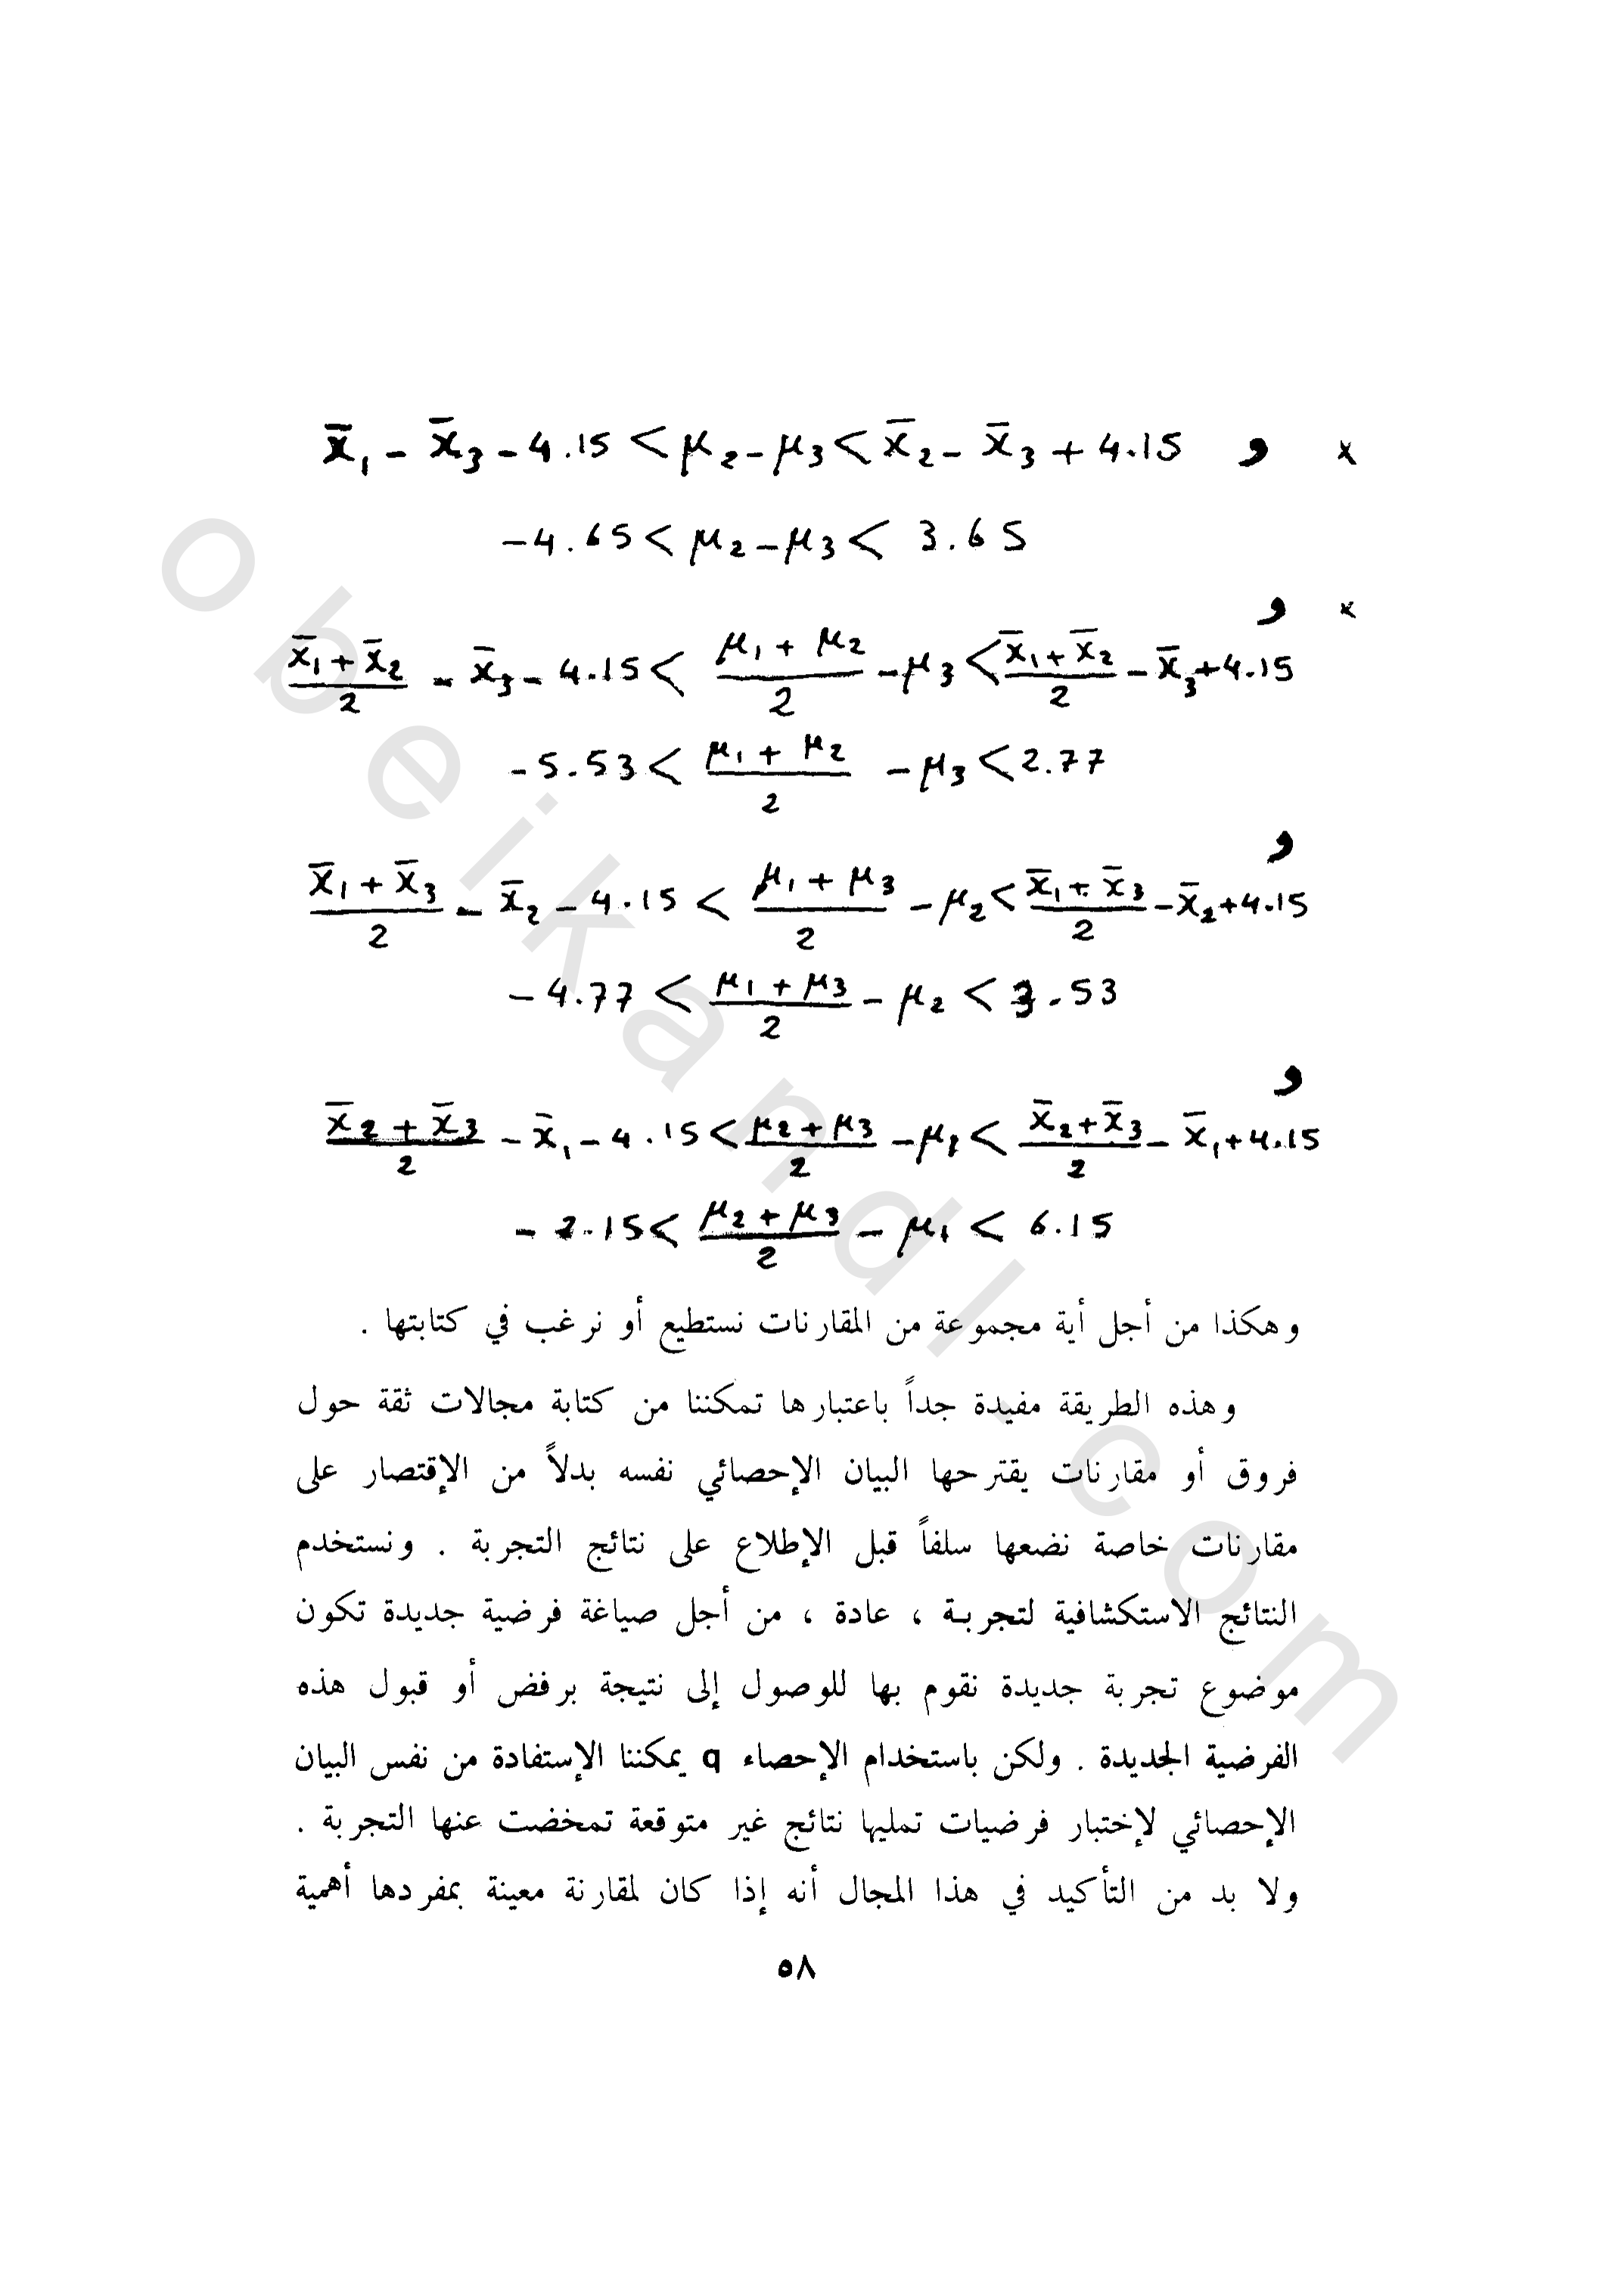 x̄₁ - x̄₃ - 4.15 < μ₂ - μ₃ < x̄₂ - x̄₃ + 4.15 و x
-4.65 < μ₂ - μ₃ < 3.65
و x
(x̄₁ + x̄₂)/2 - x̄₃ - 4.15 < (μ₁ + μ₂)/2 - μ₃ < (x̄₁ + x̄₂)/2 - x̄₃ + 4.15
-5.53 < (μ₁ + μ₂)/2 - μ₃ < 2.77
و
(x̄₁ + x̄₃)/2 - x̄₂ - 4.15 < (μ₁ + μ₃)/2 - μ₂ < (x̄₁ + x̄₃)/2 - x̄₂ + 4.15
-4.77 < (μ₁ + μ₃)/2 - μ₂ < 3.53
و
(x̄₂ + x̄₃)/2 - x̄₁ - 4.15 < (μ₂ + μ₃)/2 - μ₁ < (x̄₂ + x̄₃)/2 - x̄₁ + 4.15
-2.15 < (μ₂ + μ₃)/2 - μ₁ < 6.15
وهكذا من أجل أية مجموعة من المقارنات نستطيع أو نرغب في كتابتها .
وهذه الطريقة مفيدة جداً باعتبارها تمكننا من كتابة مجالات ثقة حول
فروق أو مقارنات يقترحها البيان الإحصائي نفسه بدلاً من الإقتصار على
مقارنات خاصة نضعها سلفاً قبل الإطلاع على نتائج التجربة . ونستخدم
النتائج الاستكشافية لتجربة ، عادة ، من أجل صياغة فرضية جديدة تكون
موضوع تجربة جديدة نقوم بها للوصول إلى نتيجة برفض أو قبول هذه
الفرضية الجديدة . ولكن باستخدام الإحصاء q يمكننا الإستفادة من نفس البيان
الإحصائي لإختبار فرضيات تمليها نتائج غير متوقعة تمخضت عنها التجربة .
ولا بد من التأكيد في هذا المجال أنه إذا كان لمقارنة معينة بمفردها أهمية
٥٨
obeikandl.com